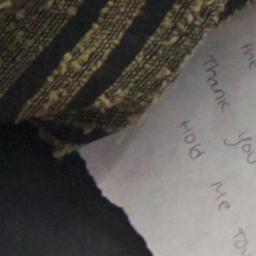 the
Thank you
Hold Me